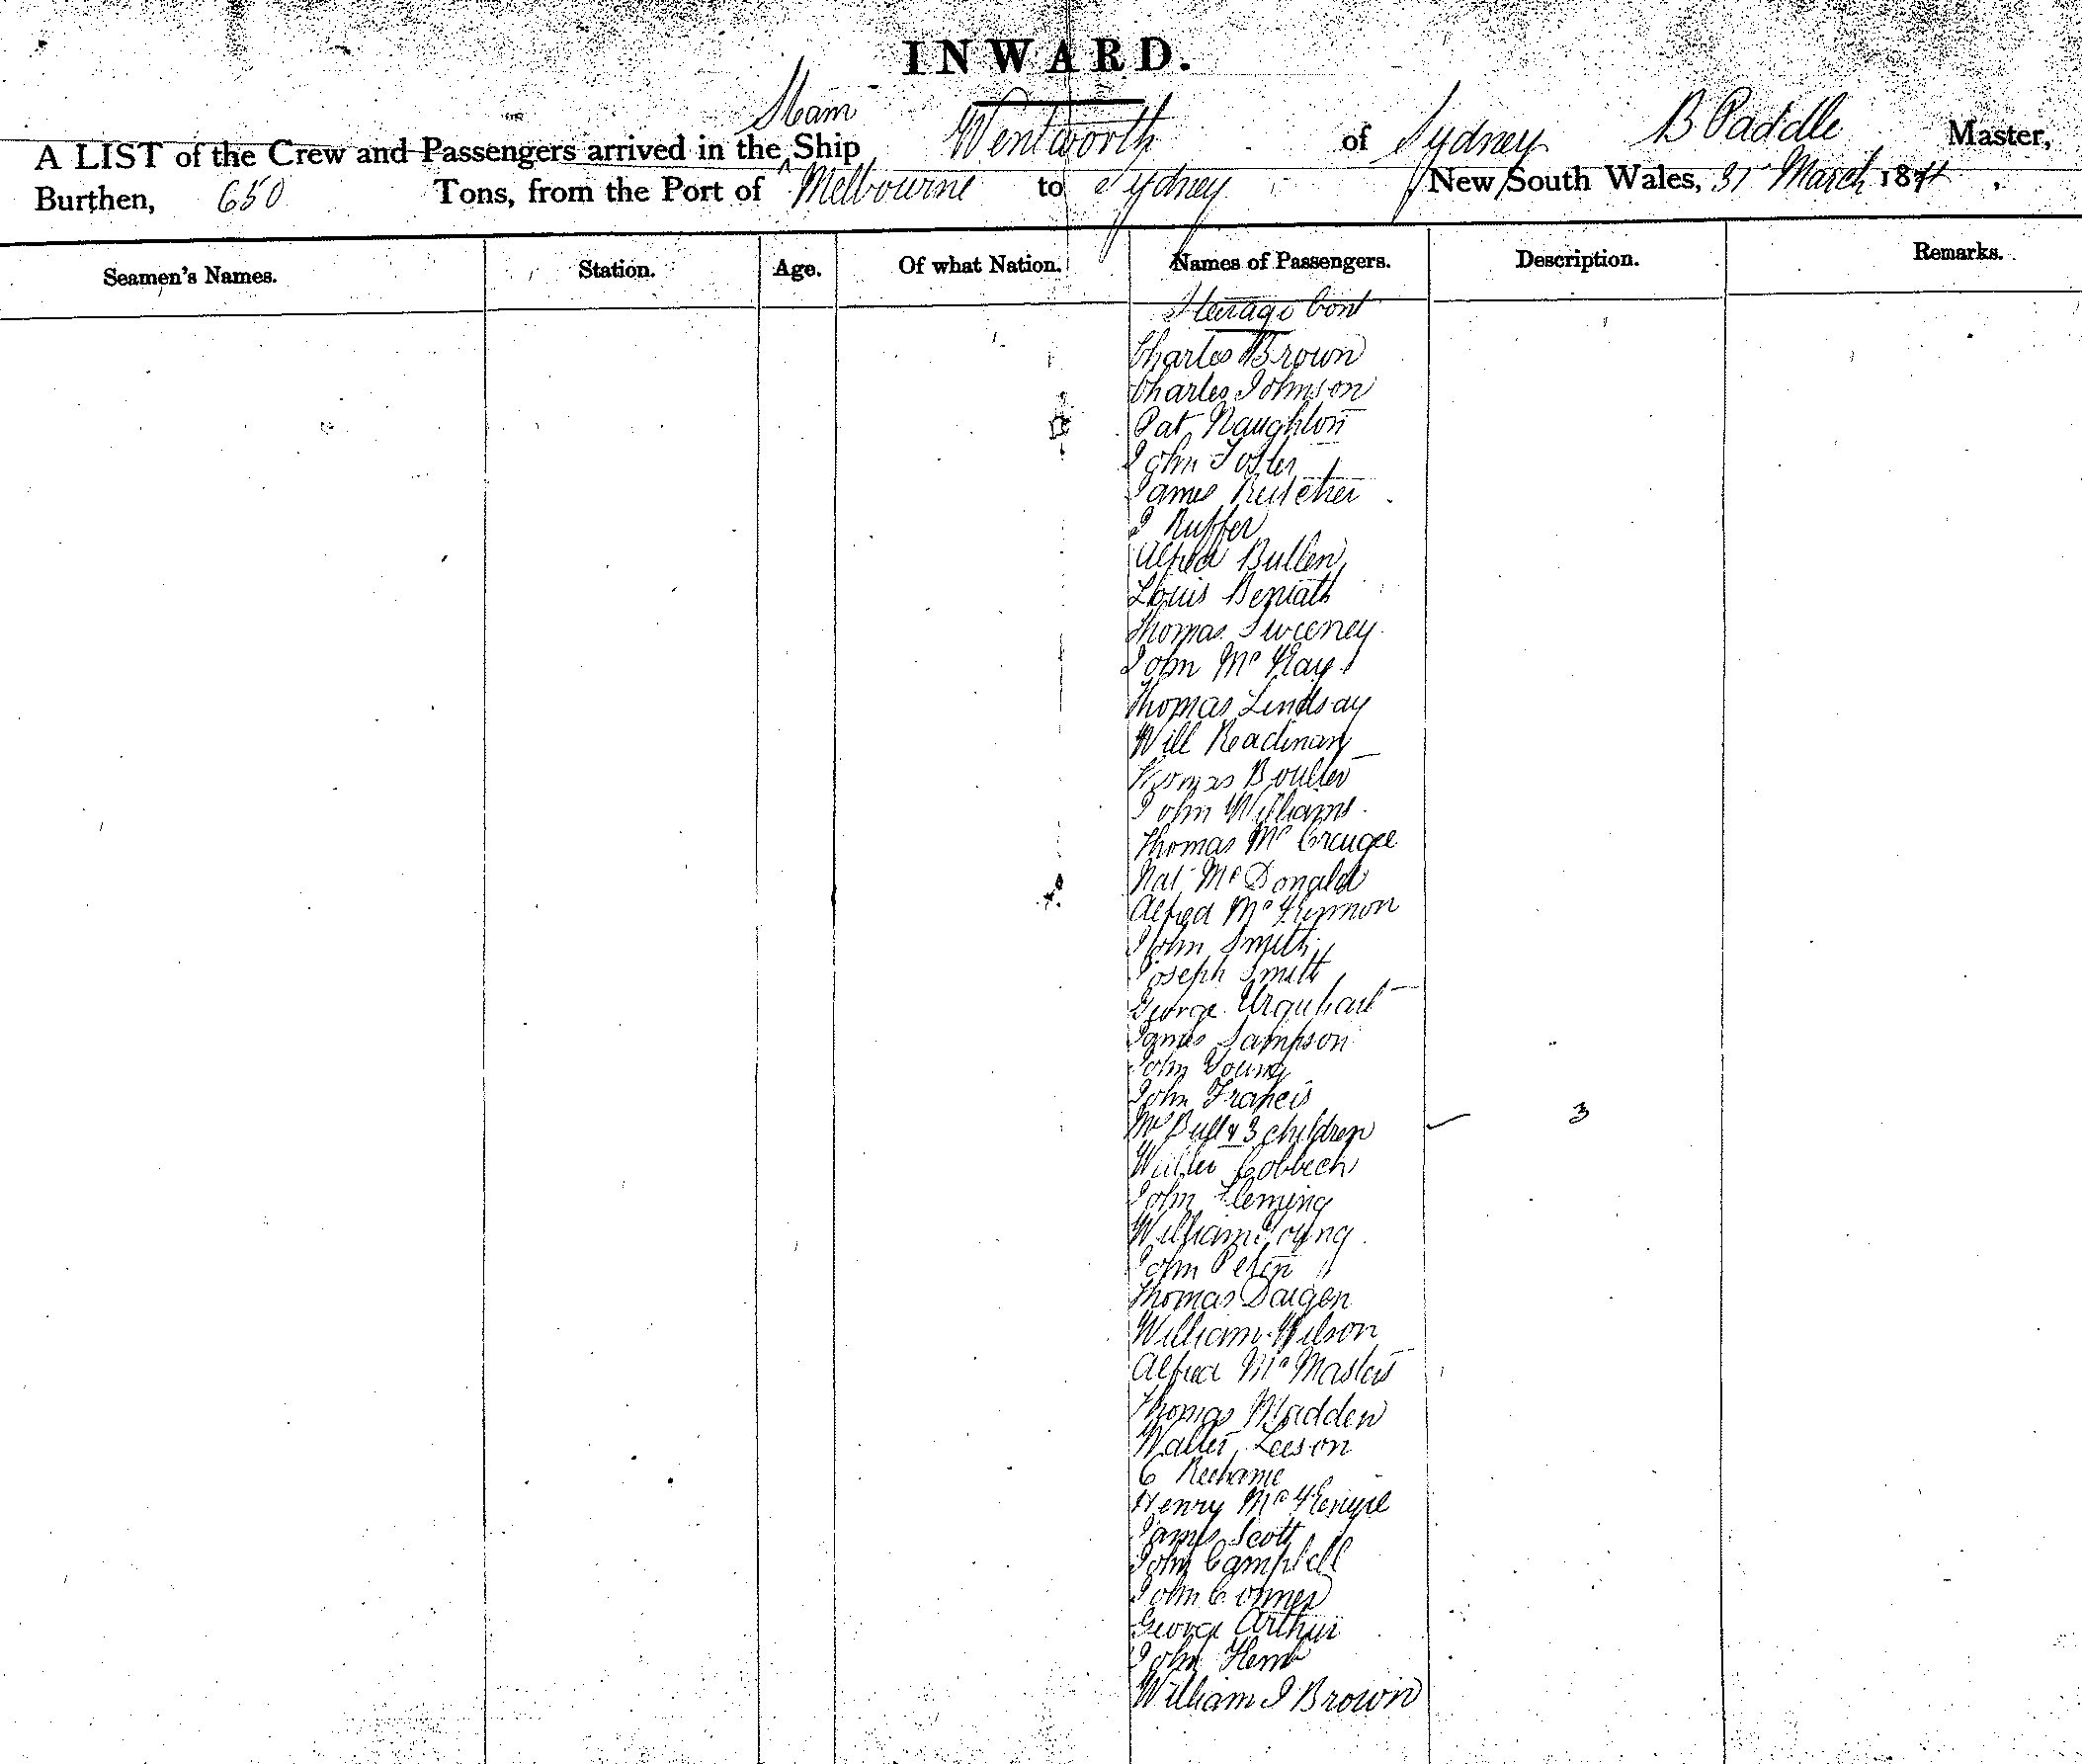 INWARD.
A LIST of the Crew and Passengers arrived in the Steam Ship Wentworth of Sydney B Paddle Master,
Burthen, 650 Tons, from the Port of Melbourne to Sydney New South Wales, 31 March 18
Seamen's Names. Station. Age. Of what Nation. Names of Passengers. Description. Remarks.
Steerage Cont
Charles Brown
Charles Johnson
Pat Naughton
John Foster
James Butcher
J Ruffer
Alfred Bullen
Louis
Thomas Sweeney
John McKay
Thomas Lindsay
Will Readman
Thomas Boulter
John Williams
Thomas Mc
Nat McDonald
Alfred McKinnon
John Smith
Joseph Smith
George Urquhart
James Sampson
John Young
John Francis
Bull & 3 children 3
Cobbech
John Fleming
William Young
John Peter
Thomas Daigen
William Wilson
Alfred McMasters
Thomas Madden
Walter Leeson
C
Henry McKenzie
James Scott
John Campbell
John Conner
George Arthur
John Kemb
William J Brown